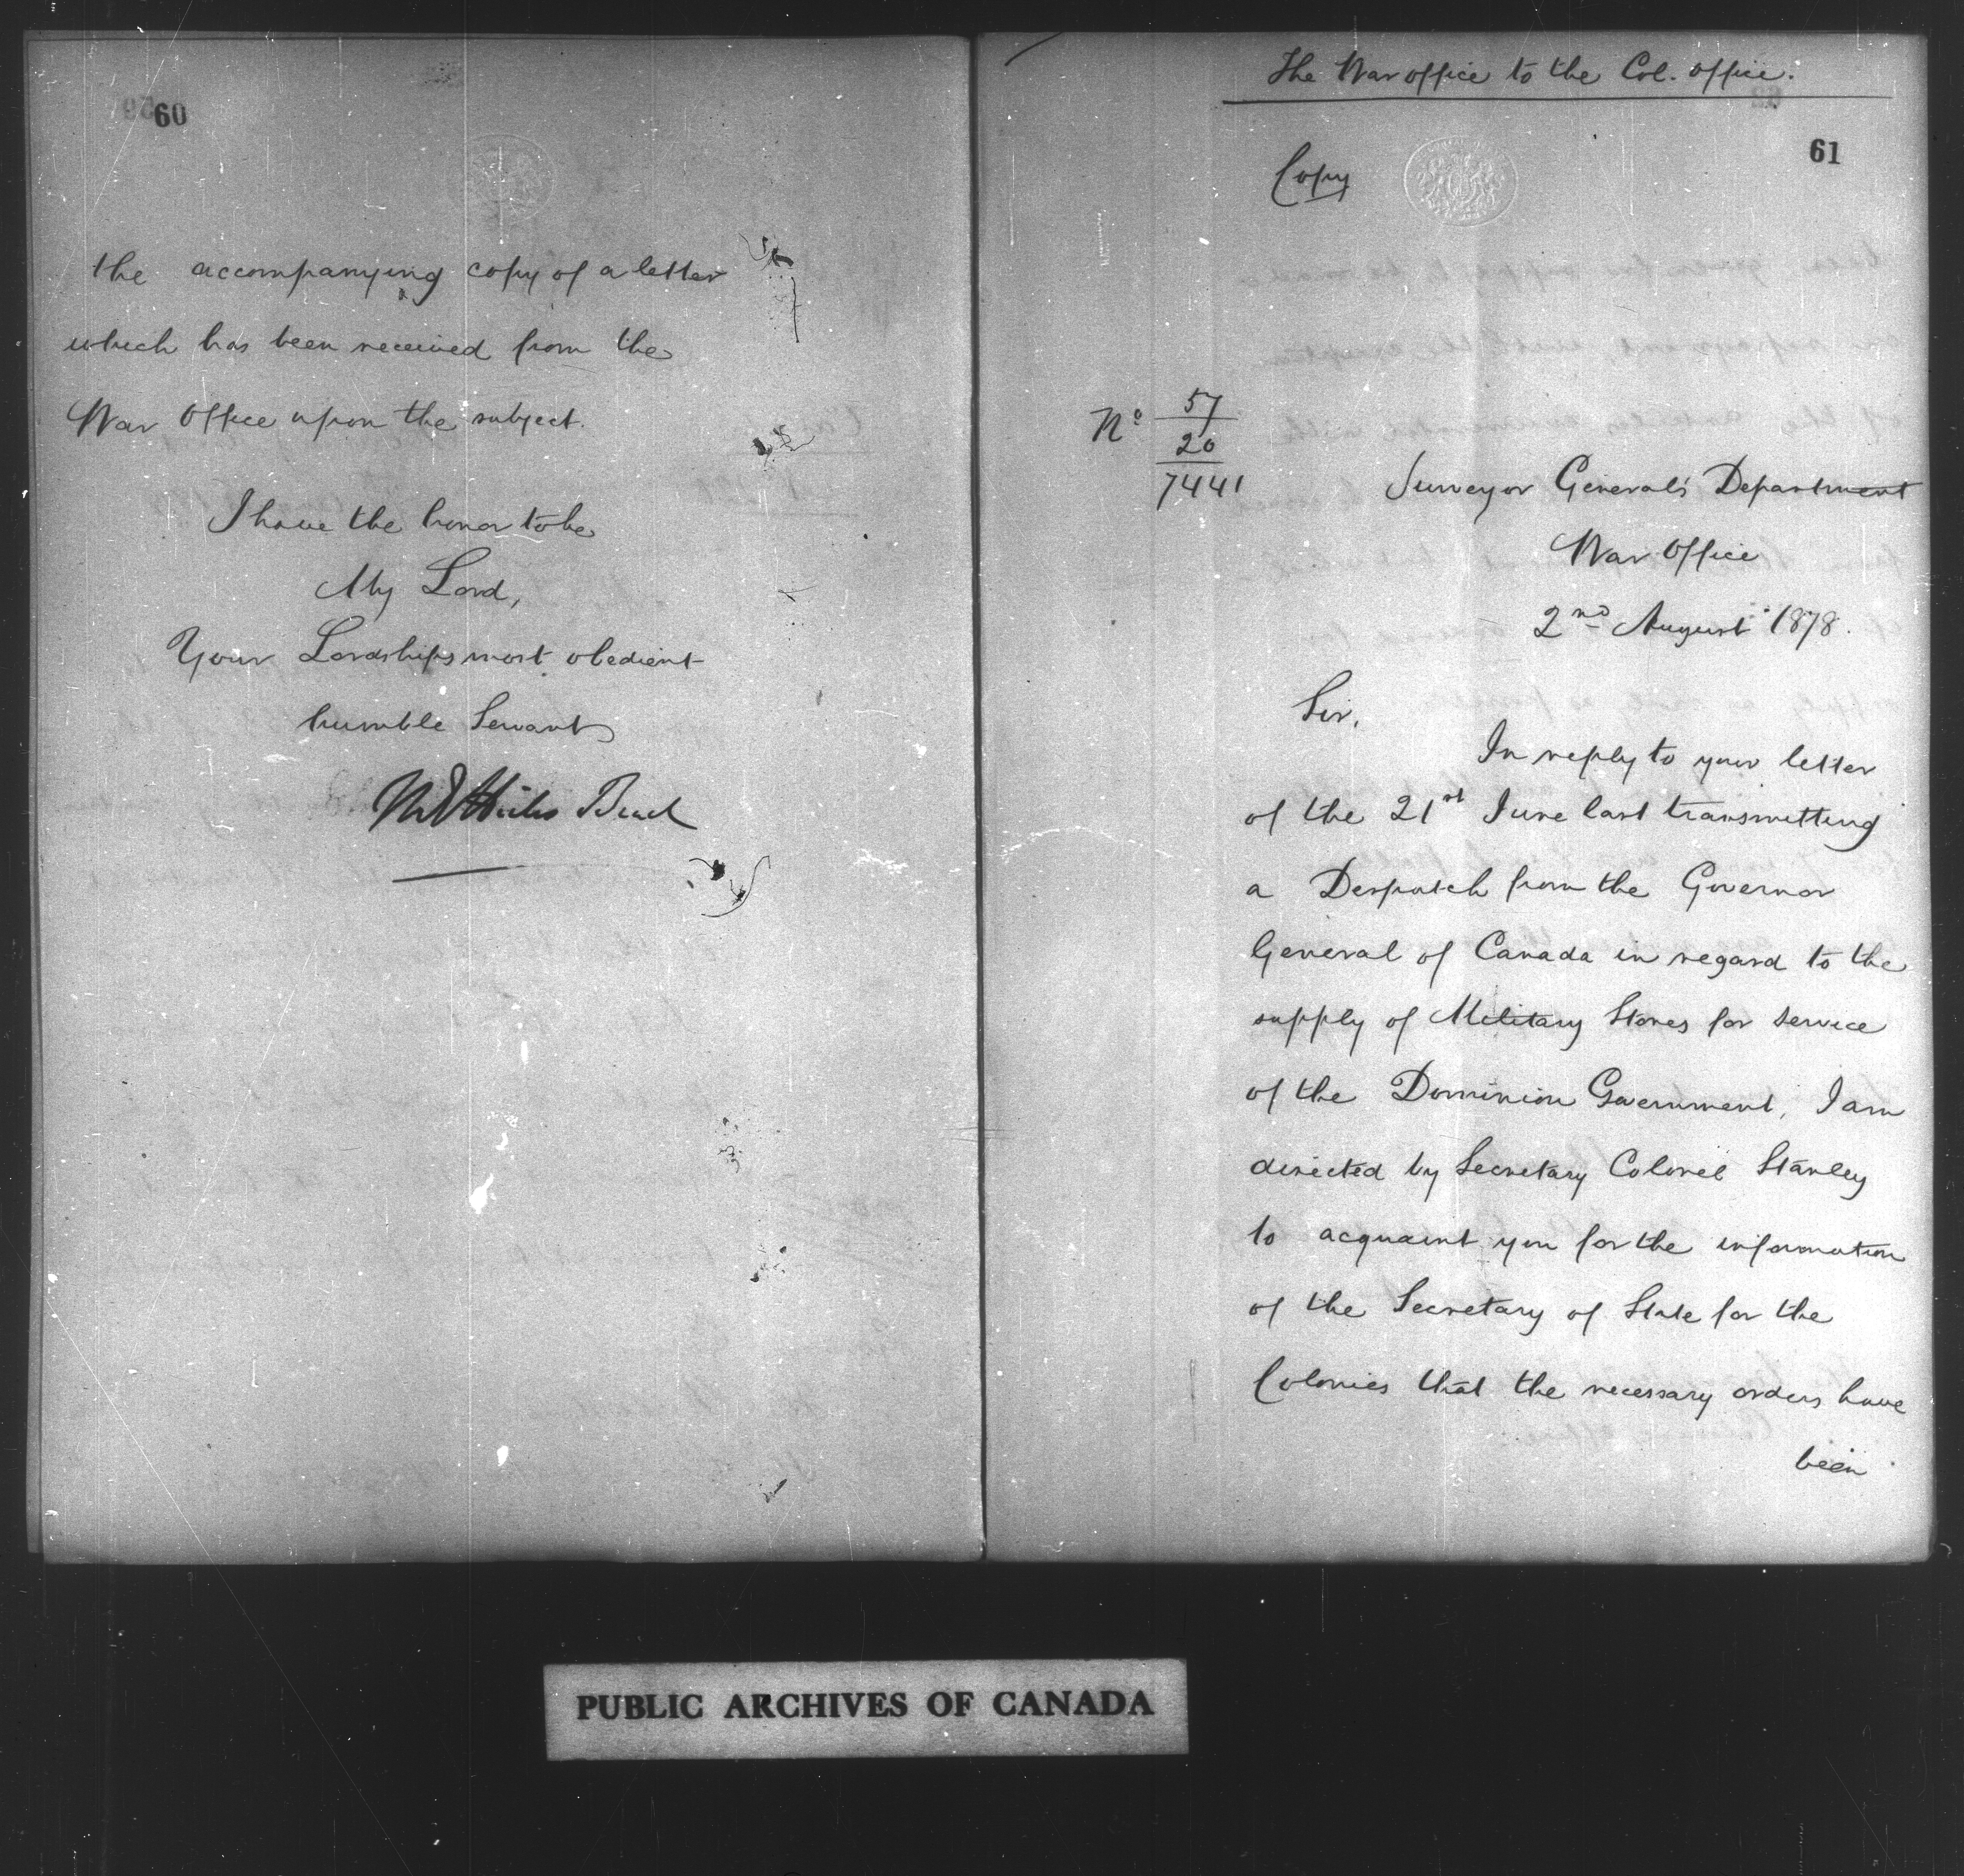 60
the accompanying copy of a letter
which has been received from the
War Office upon the subject.
I have the honor to be
My Lord,
Your Lordships most obedient
humble Servant
M E Hicks Beach
The War office to the Col. office.
61
Copy
No 57
20
7441
Surveyor General's Department
War Office
2nd August 1878.
Sir,
In reply to your letter
of the 21st June last transmitting
a Despatch from the Governor
General of Canada in regard to the
supply of Military Stores for service
of the Dominion Government, I am
directed by Secretary Colonel Stanley
to acquaint you for the information
of the Secretary of State for the
Colonies that the necessary orders have
been
PUBLIC ARCHIVES OF CANADA